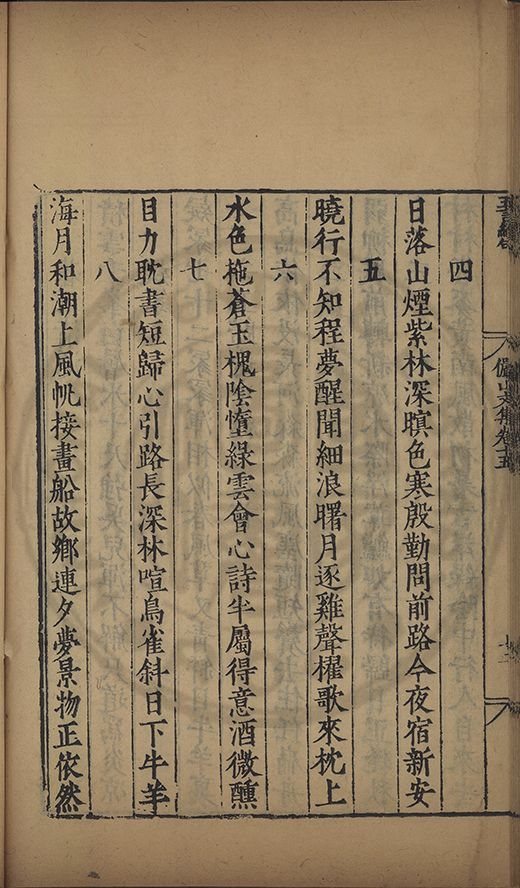 儼山文集卷十五
四
日落山煙紫林深暝色寒殷勤問前路今夜宿新安
五
曉行不知程夢醒聞細浪曙月逐雞聲櫂歌來枕上
六
水色拖蒼玉槐陰墮綠雲會心詩半屬得意酒微醺
七
目力耽書短歸心引路長深林喧鳥雀斜日下牛羊
八
海月和潮上風帆接畫船故鄉連夕夢景物正依然